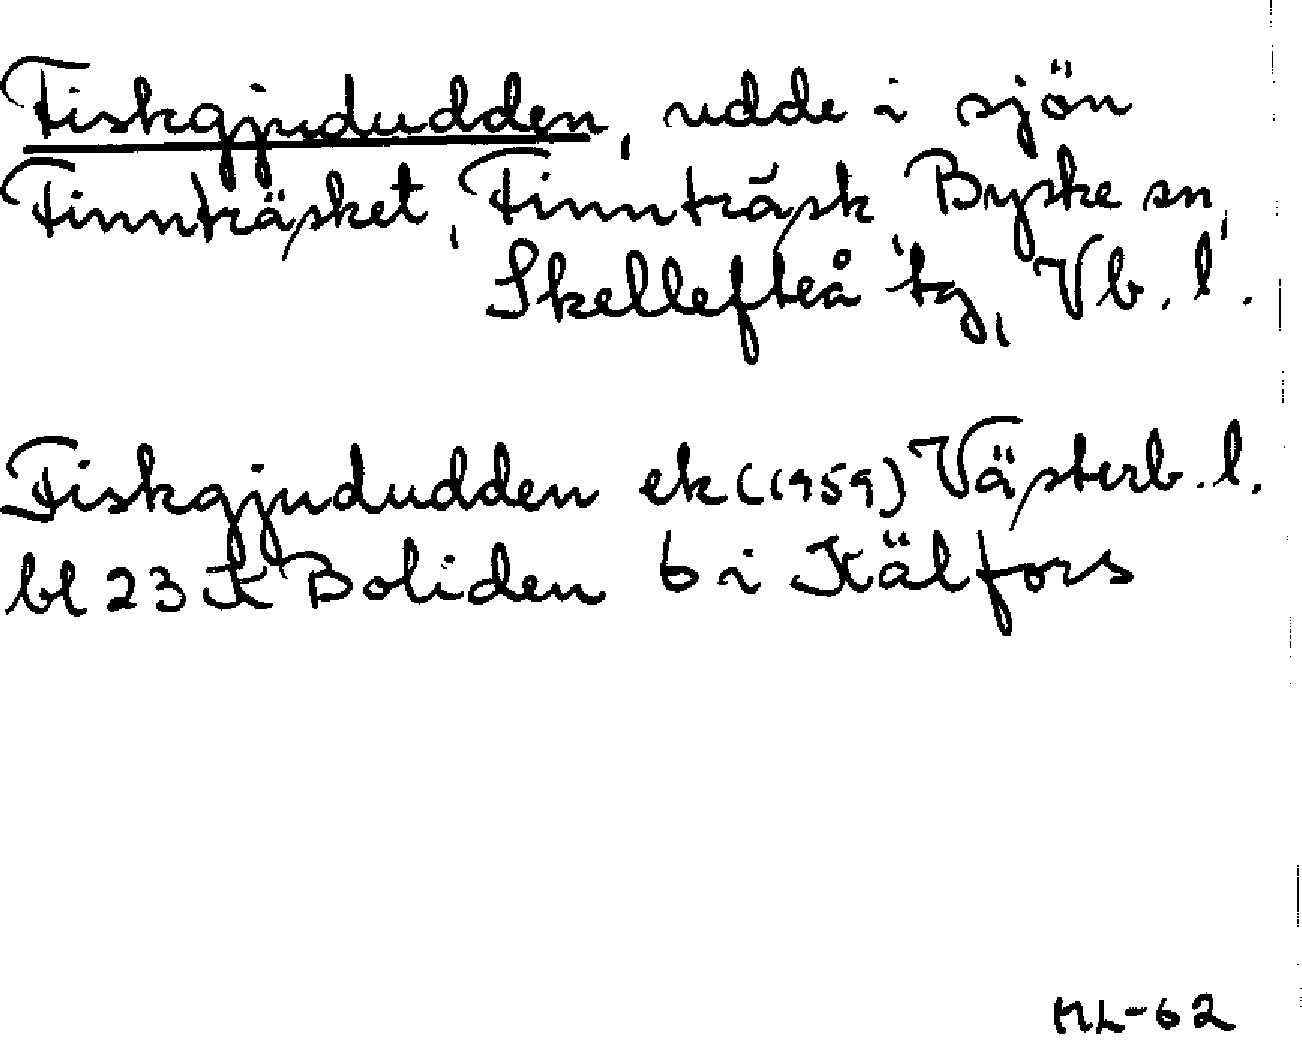 Fiskgjududden, udde i sjön
Finnträsket, Finnträsk, Byske sn,
Skellefteå tg, Vb. l.
Fiskgjududden ek (1959) Västerb. l.
bl 23 K Boliden 6 i Kälfors
ML-62